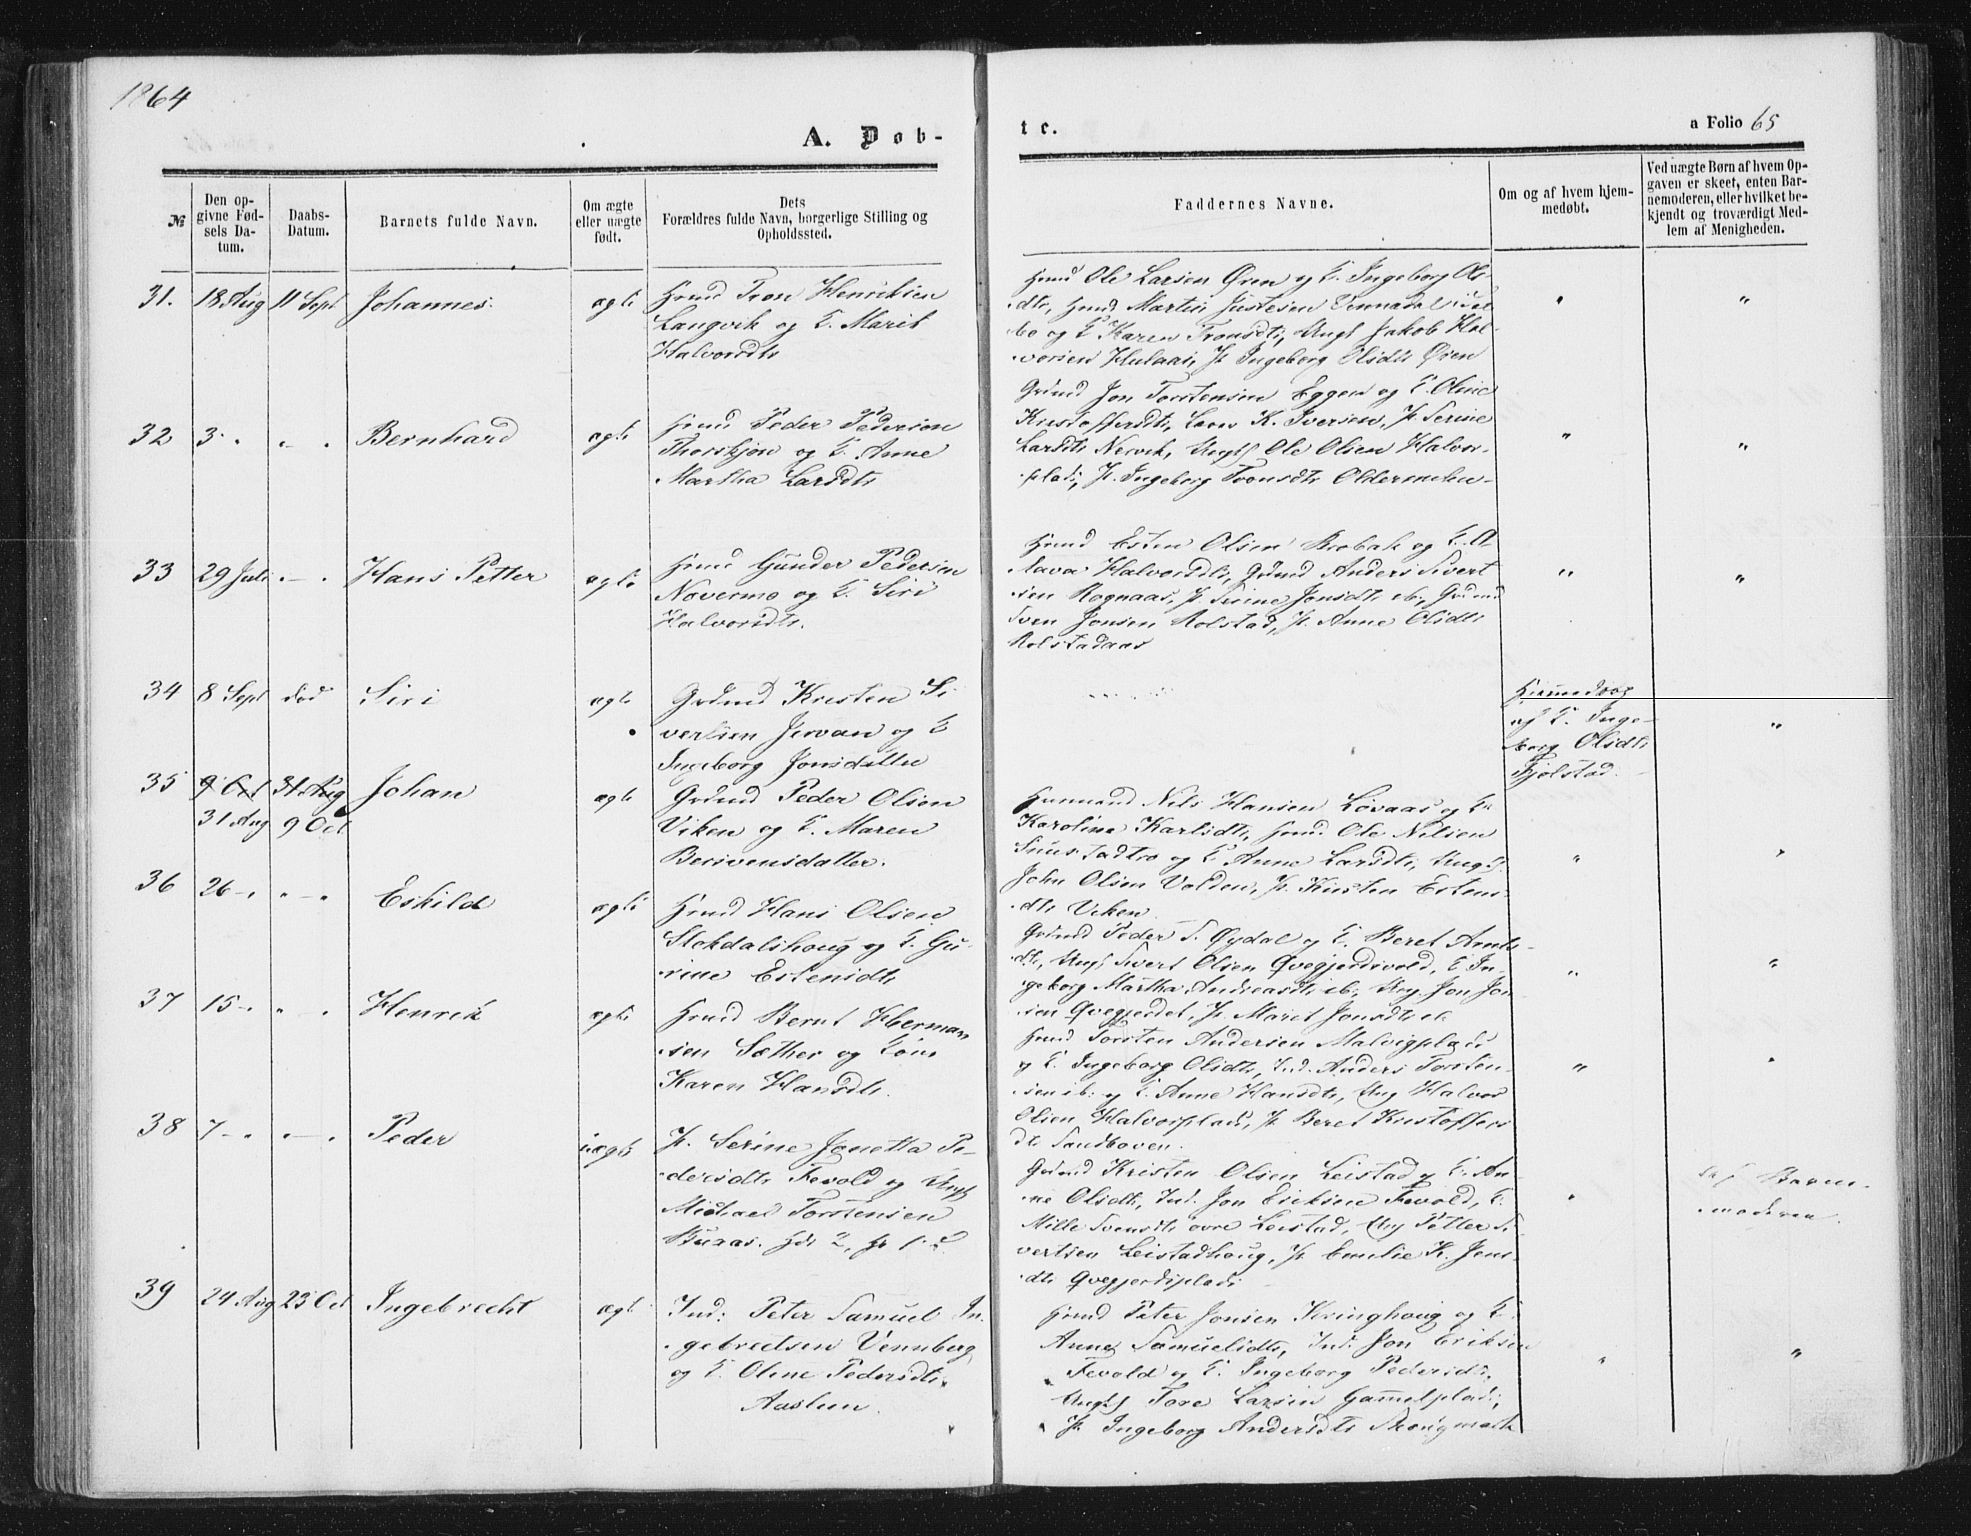 1864
A. Døb-
t e.
a Folio 65
№
Den op-
givne Fød-
sels Da-
tum.
Daabs-
Datum.
Barnets fulde Navn.
Om ægte
eller uægte
født.
Dets
Forældres fulde Navn, borgerlige Stilling og
Opholdssted.
Faddernes Navne.
Om og af hvem hjem-
medøbt.
Ved uægte Børn af hvem Op-
gaven er skeet, enten Bar-
nemoderen, eller hvilket be-
kjendt og troværdigt Med-
lem af Menigheden.
31. 18 Aug 11 Sept Johannes ægte
Tron Henriksen
Langvik og K. Marit
Halvorsdtr
Ole Larsen Øren og K. Ingeborg Ols-
dtr, Martin Justesen
bo og K. Karen Tronsdtr, Ungk Jakob Hal-
vorsen Hulaas, P. Ingeborg Olsdtr Øren
32 3 " " " Bernhard ægte
Peder Pedersen
og K. Anne
Martha Larsdtr
Jon Torstensen Eggen og K. Oline
Kristoffersdtr, K. Iversen, P. Serine
Larsdtr Nervik, Ungk Ole Olsen Halvor-
plads, P. Ingeborg Tronsdtr
33 29 Juli " - " Hans Petter ægte
Gunder Pedersen
og K. Siri
Halvorsdtr.
Esten Olsen Brobak og K.
Halvorsdtr, Grdmd Anders Sivert-
sen P. Serine Jonsdtr ib., Grdmd
Sven Jonsen Rolstad, P. Anne Olsdtr
Rolstadaas
34 8 Sept død Siri ægte
Grdmd Kristen Si-
vertsen Jervan og K
Ingeborg Jonsdatter
af K. Inge-
borg Olsdtr
Fjølstad.
35 9 Oct 31 Aug Johan ægte
31 Aug 9 Oct
Grdmd Peder Olsen
Viken og K. Maren
Nils Hansen Løvaas og K.
Karoline Karlsdtr, Ole Nilsen
og K. Anne Larsdtr, Ungk
John Olsen Volden, P. Kirsten Estens-
dtr Viken
36 26 - " " - " Eskild ægte
Hans Olsen
Stokdalshaug og K. Gu-
rine Estensdtr
Grdmd Peder S. Øydal og K. Beret Arnts-
dtr, Ungk Sivert Olsen Qvegjerdsvold, K. In-
geborg Martha Andreasdtr ib., Ung. Jon Jon-
sen Qvegjerdet, P. Maret Jonsdtr
37 15 - " " - " Henrik ægte
Bernt Herman-
sen Sæther og Kone
Karen Hansdtr.
Torsten Andersen Malvigplads
og K. Ingeborg Olsdtr, Ind. Anders Torsten-
sen ib. og K. Anne Hansdtr, Ung Halvor
Olsen Halvorplads, P. Beret Kristoffers
dtr
38 7 - " " - " Peder uægte
P. Serine Jonetta Pe-
dersdtr Fevold og Ungk
Michael Torstensen
Buraas.
Grdmd Kristen Olsen Leistad og K. An-
ne Olsdtr, Ind. Jon Eriksen Fevold, K.
Mille Svensdtr øvre Leistad, Ung Petter Si-
vertsen Leistadhaug, P. Emelie K. Jens-
dtr Qvegjerdsplads
Af Barne-
moderen.
39 24 Aug 23 Oct Ingebrecht ægte
Ind: Peter Samuel In-
gebretsen Vennberg
og K. Oline Pedersdtr
Peter Jonsen og K.
Anne Samuelsdtr, Ind. Jon Eriksen
Fevold og K. Ingeborg Pedersdtr,
Ungk Tore Larsen Gammelplads,
P. Ingeborg Andersdtr